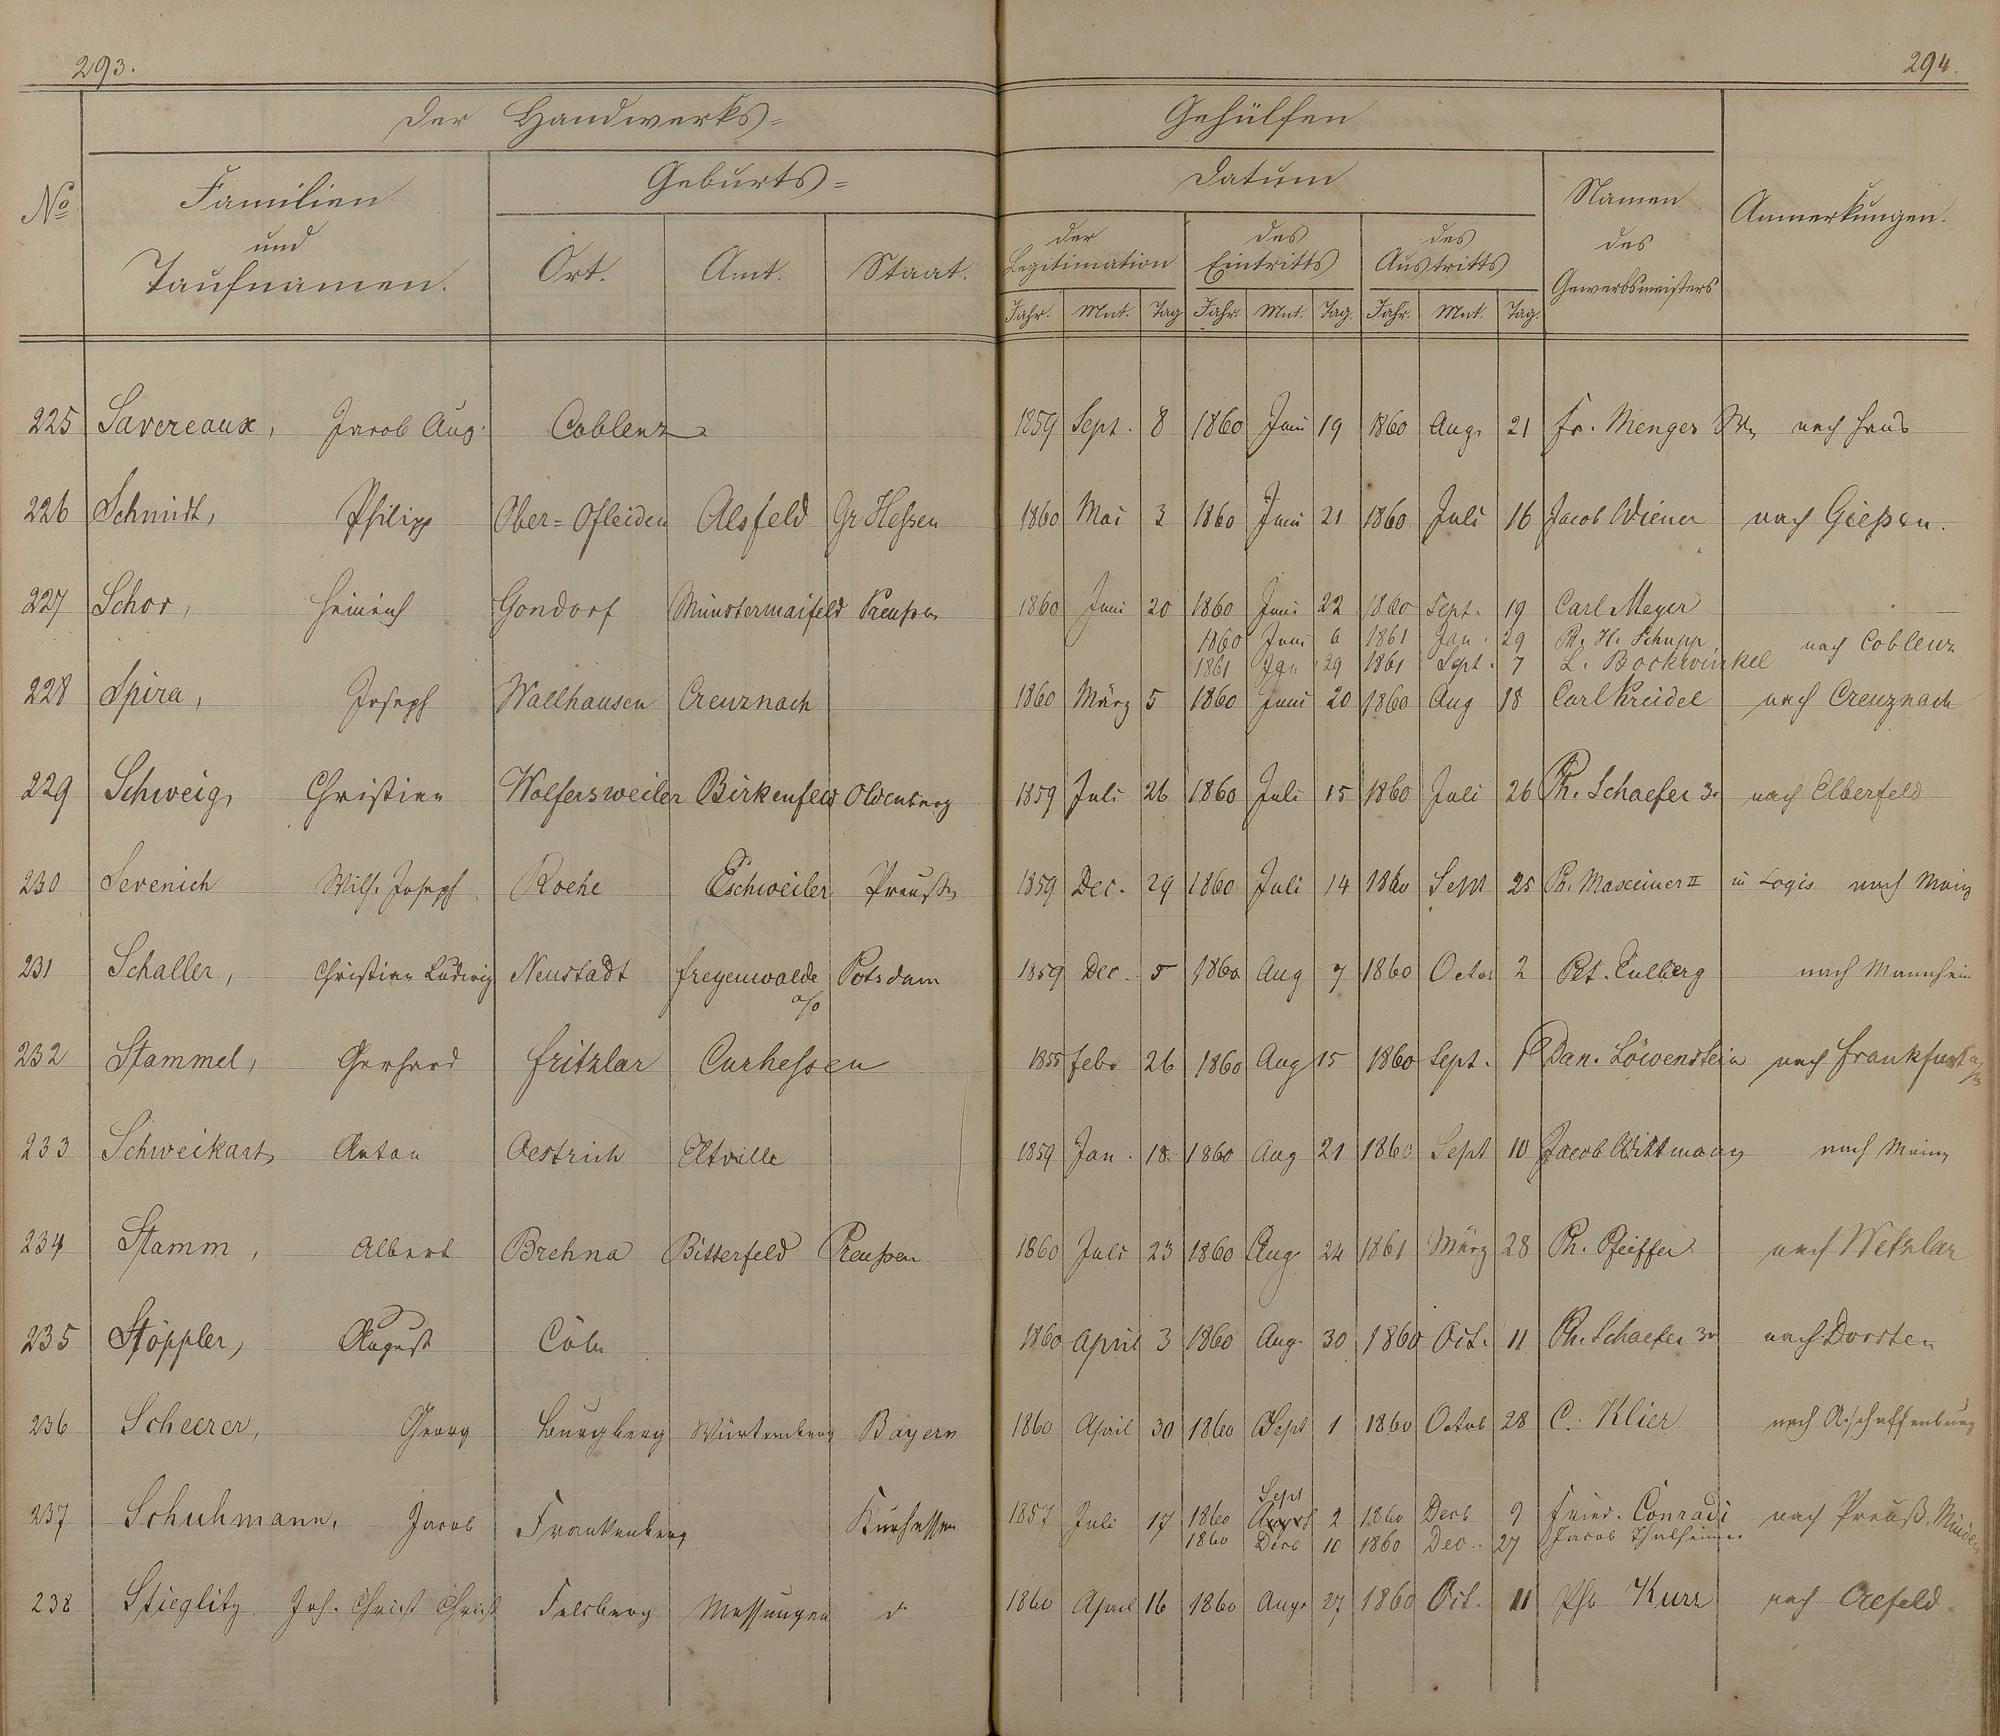 293.
294.
Der Handwerks=
Gehülfen
No
Familien
und
Taufnamen.
Geburts=
Ort. Amt. Staat.
Datum
der
Legitimation
des
Eintritts
des
Austritts
Namen
des
Gewerbsmeisters
Anmerkungen.
Jahr. Mnt. Tag Jahr. Mnt. Tag. Jahr. Mnt. Tag.
225 Savereaux, Jacob Aug. Coblenz 1859 Sept. 8 1860 Juni 19 1860 Aug. 21 Fr. Menger nach Haus
226 Schmidt, Philipp Ober=Ofleiden Alsfeld Gr Heßen 1860 Mai 3 1860 Juni 21 1860 Juli 16 Jacob Wiener nach Gießen.
227 Schor, Heinrich Gondorf Münstermaifeld Preußen 1860 Juni 20 1860 Juni 22 1860 Sept. 19 Carl Meyer
1860 Juni 6 1861 Jan. 29 Ph. H. Schupp nach Coblenz
1861 Jan 29 1861 Sept. 7 L. Bockwinkel
228 Spira, Joseph Wallhausen Creuznach 1860 März 5 1860 Juni 20 1860 Aug 18 Carl Kreidel nach Creuznach
229 Schweig, Christian Wolfersweiler Birkenfeld Oldenburg 1859 Juli 26 1860 Juli 15 1860 Juli 26 Ph. Schaefer 3r nach Elberfeld
230 Sevenich Wilh. Joseph Roehe Eschweiler Preußen 1859 Dec. 29 1860 Juli 14 1860 Sept 25 Ph. II in Logis nach Mainz
231 Schaller, Christian Ludwig Neustadt Freyenwalde Potsdam 1859 Dec. 5 1860 Aug 7 1860 Octor 2 Pet. Culberg nach Mannheim
a/o
232 Stammel, Gerhard Fritzlar Curhessen 1855 Febr 26 1860 Aug 15 1860 Sept. Dan. Löwenstein nach Frankfurt a/m
233 Schweikart Anton Oestrich Eltville 1859 Jan. 18 1860 Aug 21 1860 Sept 10 Jacob Wittmann nach Mainz
234 Stamm, Albert Brehna Bitterfeld Preußen 1860 Juli 23 1860 Aug. 24 1861 März 28 Ph. Pfeiffer nach Wetzlar
235 Stöppler, August Cöln 1860 April 3 1860 Aug. 30 1860 Oct. 11 Ph. Schaefer 3r nach Dorsten
236 Scheerer, Georg Burgberg Würtemberg Bayern 1860 April 30 1860 Sept 1 1860 Octob 28 C. Klier nach Aschaffenburg
Sept
237 Schuhmann, Jacob Frankenberg Kurhessen 1857 Juli 17 1860 August 2 1860 Decb 9 Fried. Conradi nach Preuß. Minden
1860 Decb 10 1860 Dec. 27 Jacob Thalheimer
238 Stieglitz Joh. Christ Christ Felsberg Melsungen d 1860 April 16 1860 Aug. 27 1860 Oct. 11 Phl Kurz nach Crefeld.